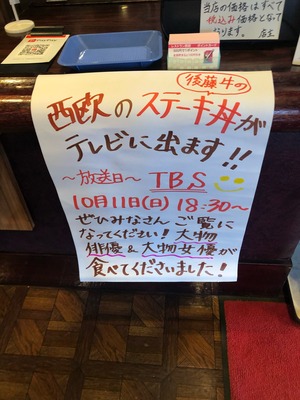 当店の価格はすべて
税込み価格となって
おります。 店主
後藤牛の
西欧のステーキ丼が
テレビに出ます!!
～放送日～ TBS
10月11日(日) 18:30～
ぜひみなさん ご覧に
なってください! 大物
俳優 & 大物女優が
食べてくださいました!